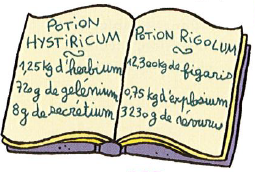 POTION
HYSTIRICUM
1,25 kg d'herbium
72g de gelénium
8g de secrétium
POTION RIGOLUM
12,300kg de figaris
0,75 kg d'explosium
3230g de